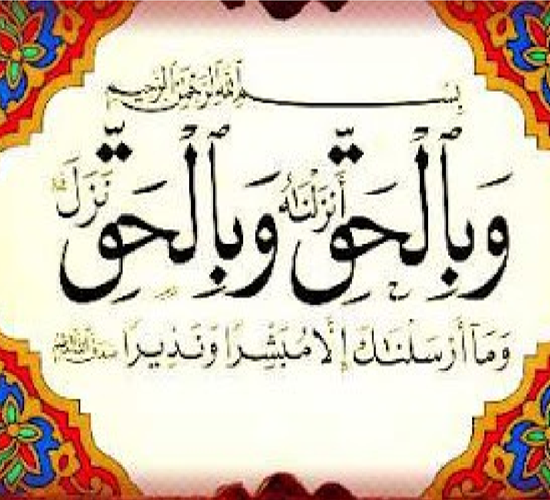 بِسْمِ اللَّهِ الرَّحْمَٰنِ الرَّحِيمِ
وَبِالْحَقِّ أَنزَلْنَاهُ وَبِالْحَقِّ نَزَلَ
وَمَا أَرْسَلْنَاكَ إِلَّا مُبَشِّرًا وَنَذِيرًا صدق الله العظيم